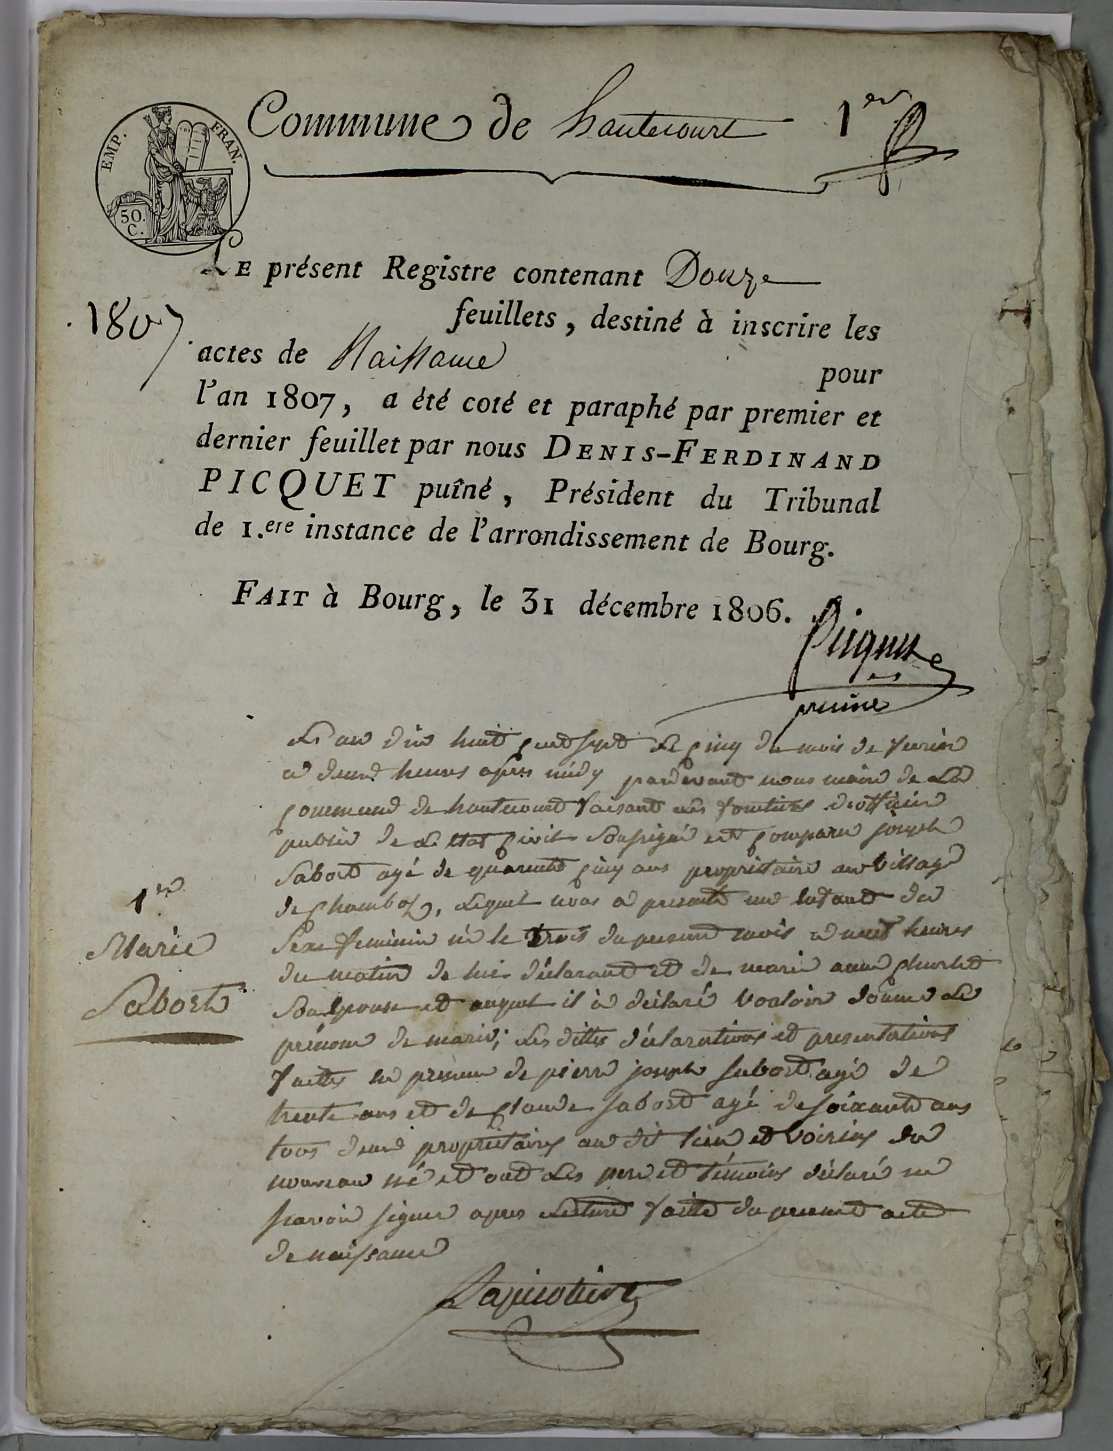 Commune de hautecourt 1er
EMP. FRAN.
50. C.
LE présent Registre contenant Douze
1807. feuillets, destiné à inscrire les
actes de Naissance pour
l'an 1807, a été coté et paraphé par premier et
dernier feuillet par nous DENIS-FERDINAND
PICQUET puîné, Président du Tribunal
de 1.ere instance de l'arrondissement de Bourg.
FAIT à Bourg, le 31 décembre 1806.
Picquet
puiné
L'an dix huit cent sept le cinq du mois de fevrier
a deux heures apres midy pardevant nous maire de la
commune de hautecourt faisant les fonctions d'officier
public de l'etat civil soussigné est comparu joseph
Sabost agé de quarente cinq ans proprietaire au village
de Chambod, lequel nous a presenté un enfant du
sexe feminin né le trois du present mois a neuf heures
du matin de lui déclarant et de marie anne
son epouse et auquel il a déclaré vouloir donner le
prénom de marie; les dittes déclarations et presentations
faittes en presence de pierre joseph sabost agé de
trente ans et de Claude sabost agé de soixante ans
tous deux proprietaires au dit lieu et voisins du
nouveau né et ont les pere et témoins déclaré ne
scavoir signer apres lecture faitte du present acte
de naissance
1er
Marie
Sabost